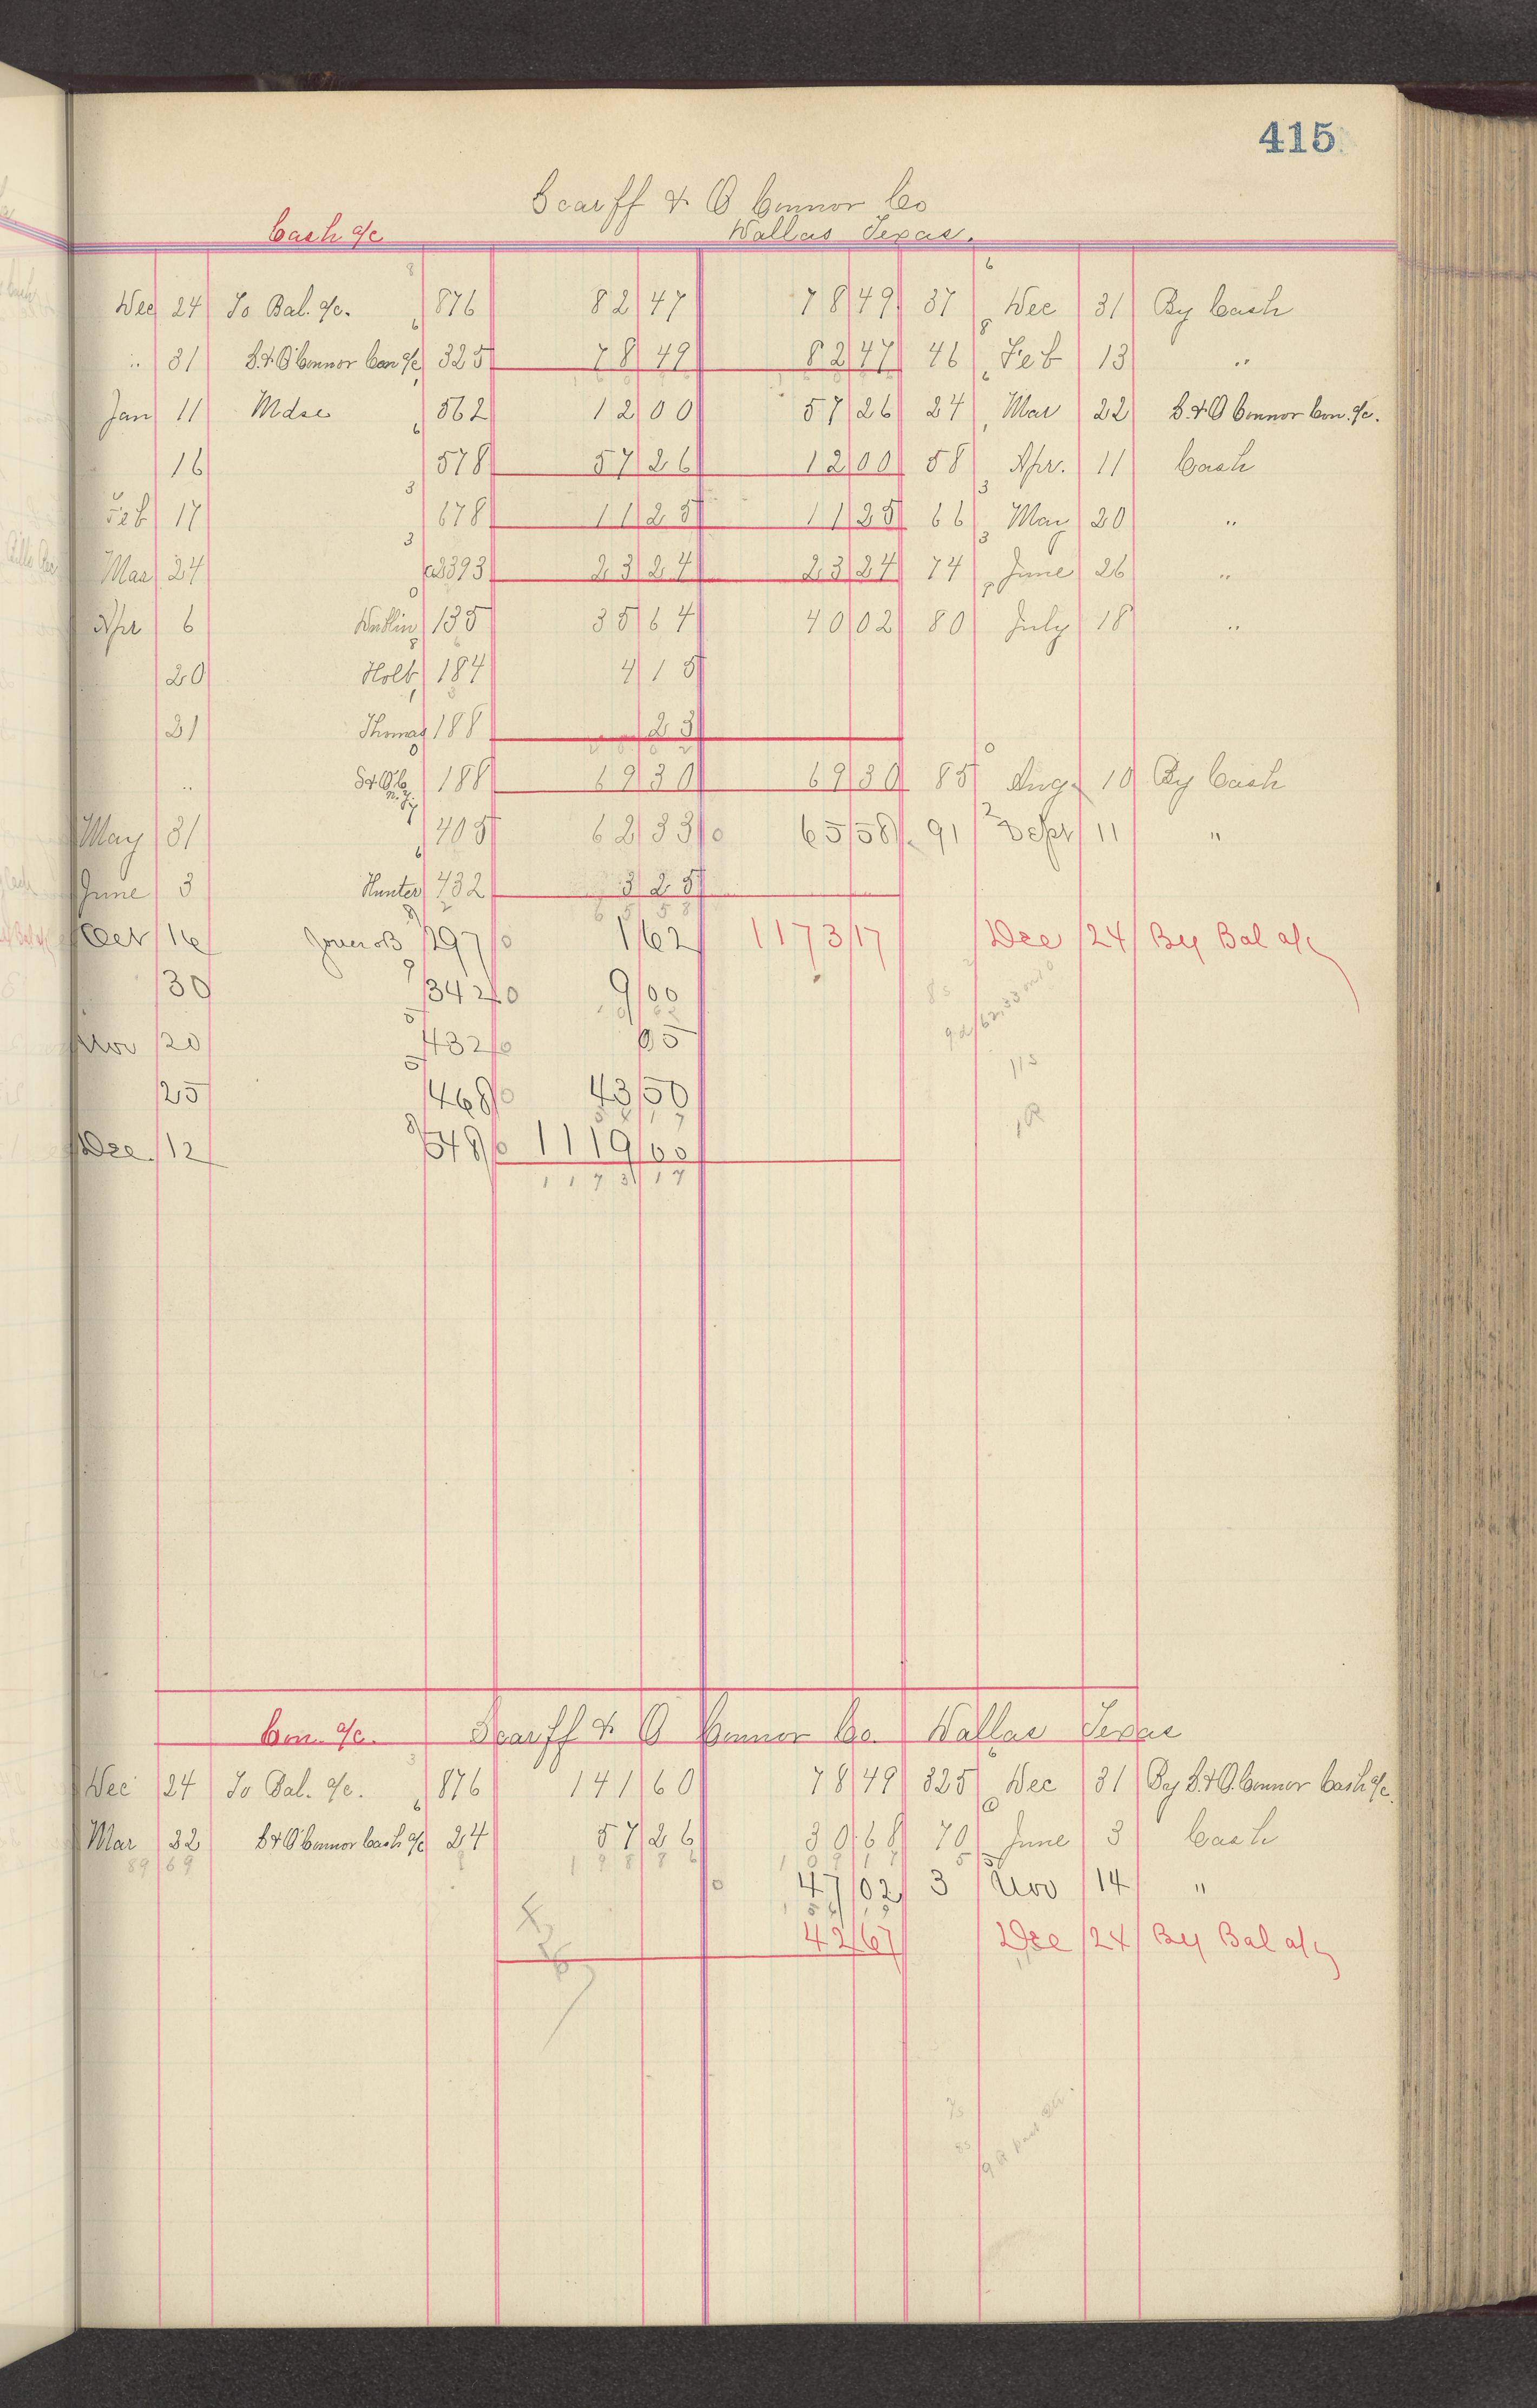 415
Scarff & O Connor Co
Cash a/c Dallas Texas.
Dec 24 To Bal. a/c. 876 82 47 78 49 37 Dec 31 By Cash
" 31 S. & O'Connor Con a/c 325 78 49 82 47 46 Feb 13 "
Jan 11 Mdse 562 12 00 57 26 24 Mar 22 S. & O Connor Con. a/c.
16 578 57 26 12 00 58 Apr. 11 Cash
Feb 17 678 11 25 11 25 66 May 20 "
Mar 24 393 23 24 23 24 74 June 26 "
Apr 6 Dublin 135 35 64 40 02 80 July 18 "
20 Holt 184 4 15
21 Thomas 188 23
" 188 69 30 69 30 85 Aug 10 By Cash
May 31 405 62 33 65 58 91 Sept 11 "
June 3 Hunter 432 3 25
65 58
Oct 16 297 1 62 1173 17 Dec 24 By Bal a/c
30 342 9 00
Nov 20 432 05
25 468 43 50
Dec. 12 548 1119 00
1173 17
Con. a/c. Scarff & O Connor Co. Dallas Texas
Dec 24 To Bal. a/c. 876 141 60 78 49 325 Dec 31 By S. & O. Connor Cash a/c.
Mar 22 S & O'Connor Cash a/c 24 57 26 30 68 70 June 3 Cash
89 69 198 86 109 17
47 02 3 Nov 14 "
42 67 Dec 24 By Bal a/c